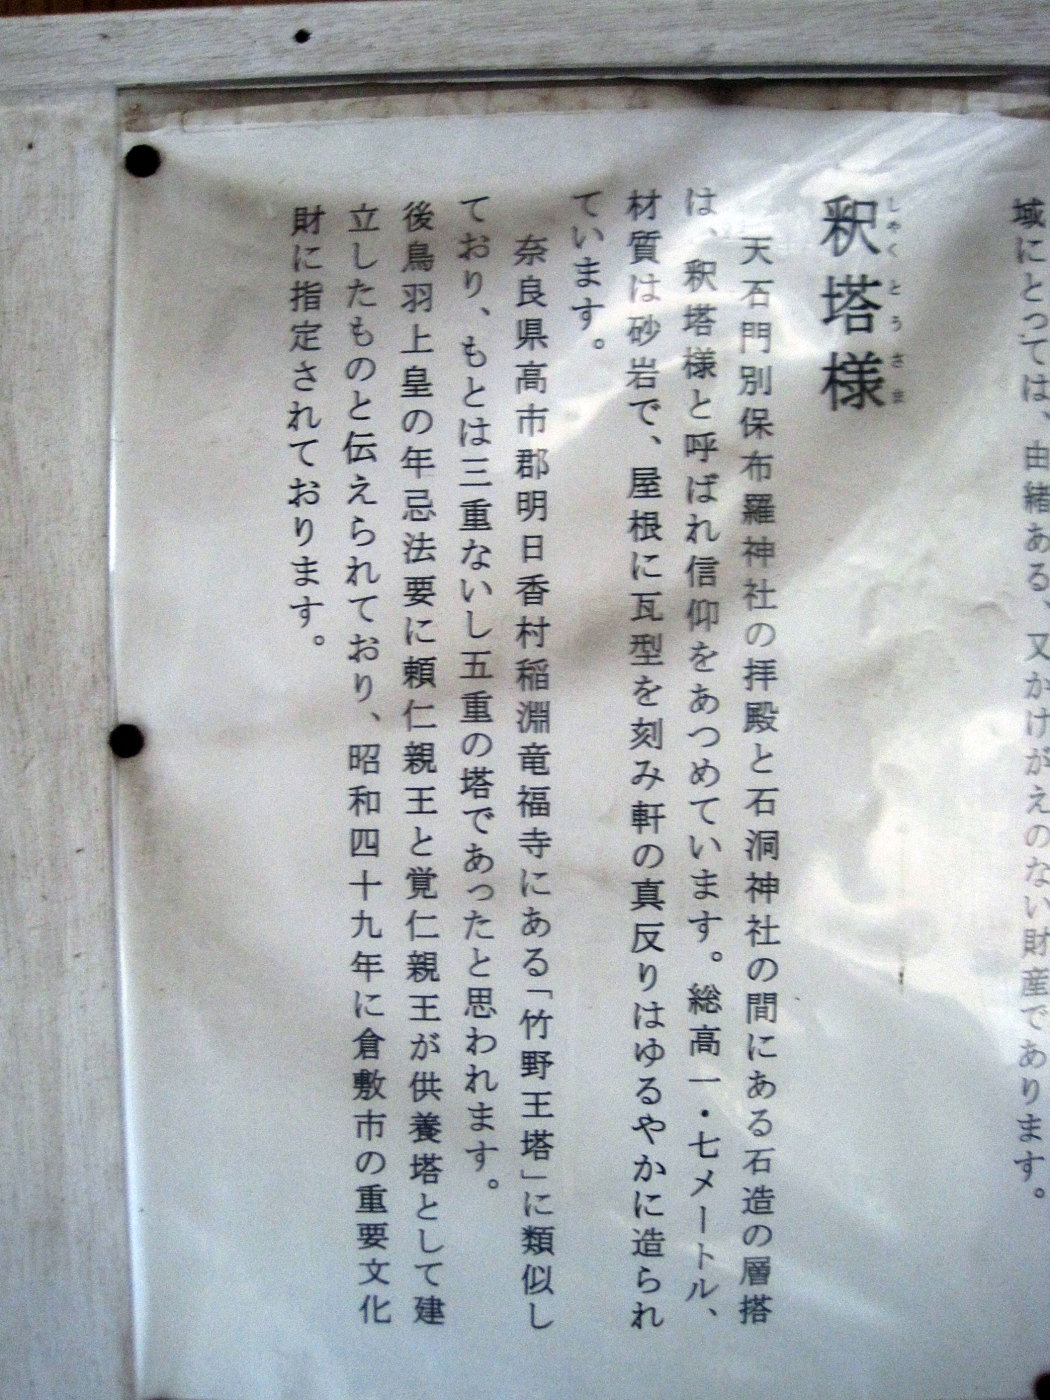 域にとっては、由緒ある、又かけがえのない財産であります。
釈塔様
しゃくとうさま
天石門別保布羅神社の拝殿と石洞神社の間にある石造の層搭
は、釈塔様と呼ばれ信仰をあつめています。総高一・七メートル、
材質は砂岩で、屋根に瓦型を刻み軒の真反りはゆるやかに造られ
ています。
奈良県高市郡明日香村稲淵竜福寺にある「竹野王塔」に類似し
ており、もとは三重ないし五重の塔であったと思われます。
後鳥羽上皇の年忌法要に頼仁親王と覚仁親王が供養塔として建
立したものと伝えられており、昭和四十九年に倉敷市の重要文化
財に指定されております。